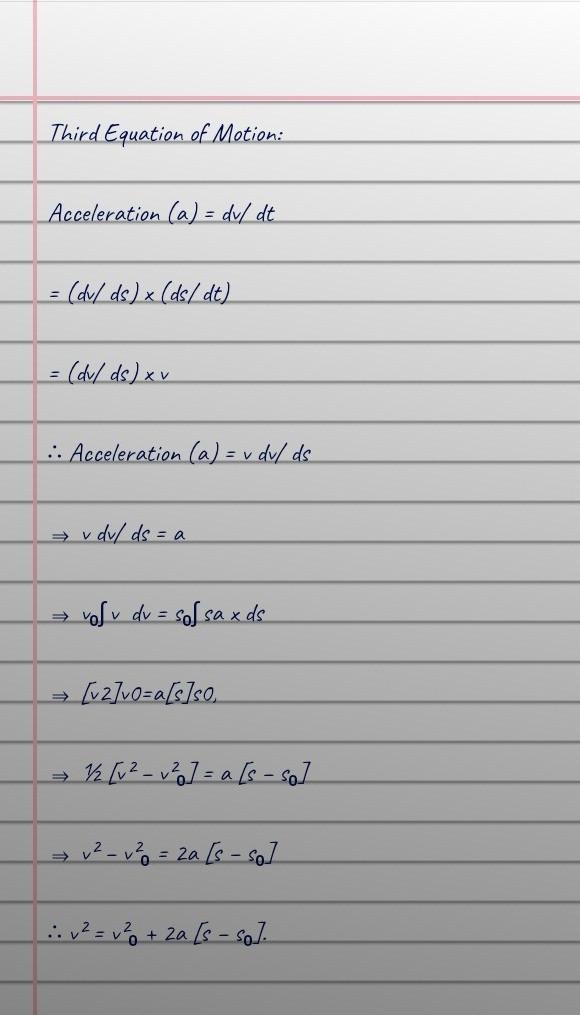 Third Equation of Motion:
Acceleration (a) = dv/ dt
= (dv/ ds) x (ds/ dt)
= (dv/ ds) x v
∴ Acceleration (a) = v dv/ ds
⇒ v dv/ ds = a
⇒ v₀∫ v dv = s₀∫ sa x ds
⇒ [v2]v0=a[s]s0,
⇒ ½ [v² – v²₀] = a [s – s₀]
⇒ v² – v²₀ = 2a [s – s₀]
∴ v² = v²₀ + 2a [s – s₀].